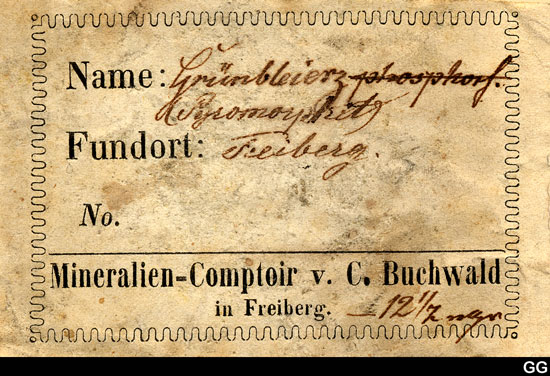 Name: Grünbleierz phosphors.
(Pyromorphit)
Fundort: Freiberg.
No.
Mineralien-Comptoir v. C. Buchwald
in Freiberg. 12 1/2 ngr
GG